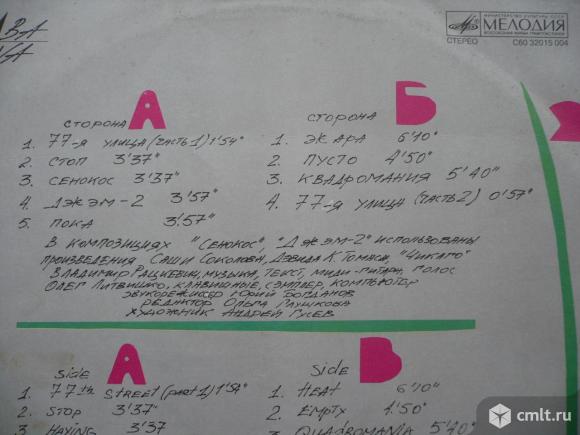 ВА
GA
МИНИСТЕРСТВО КУЛЬТУРЫ СССР
МЕЛОДИЯ
ВСЕСОЮЗНАЯ ФИРМА ГРАМПЛАСТИНОК
СТЕРЕО С60 32015 004
СТОРОНА А
1. 77-я УЛИЦА (ЧАСТЬ 1) 1'54"
2. СТОП 3'37"
3. СЕНОКОС 3'37"
4. ДЖЭМ-2 3'57"
5. ПОКА 3'57"
СТОРОНА Б
1. ЖАРА 6'10"
2. ПУСТО 4'50"
3. КВАДРОМАНИЯ 5'40"
4. 77-я УЛИЦА (ЧАСТЬ 2) 0'57"
В КОМПОЗИЦИЯХ "СЕНОКОС", "ДЖЭМ-2" ИСПОЛЬЗОВАНЫ
ПРОИЗВЕДЕНИЯ САШИ СОКОЛОВА, ДЭВИДА К. ТОМАСА, "ЧИКАГО"
ВЛАДИМИР РАЦКЕВИЧ, МУЗЫКА, ТЕКСТ, МИДИ-ГИТАРА, ГОЛОС
ОЛЕГ ЛИТВИШКО, КЛАВИШНЫЕ, СЭМПЛЕР, КОМПЬЮТЕР
ЗВУКОРЕЖИССЕР ЮРИЙ БОГДАНОВ
РЕДАКТОР ОЛЬГА ГЛУШКОВА
ХУДОЖНИК АНДРЕЙ ГУСЕВ
Side A
1. 77th STREET (part 1) 1'54"
2. STOP 3'37"
3. HAYING 3'37
Side B
1. HEAT 6'10"
2. EMPTY 4'50"
3. QUADROMANIA 5'40"
© cmlt.ru